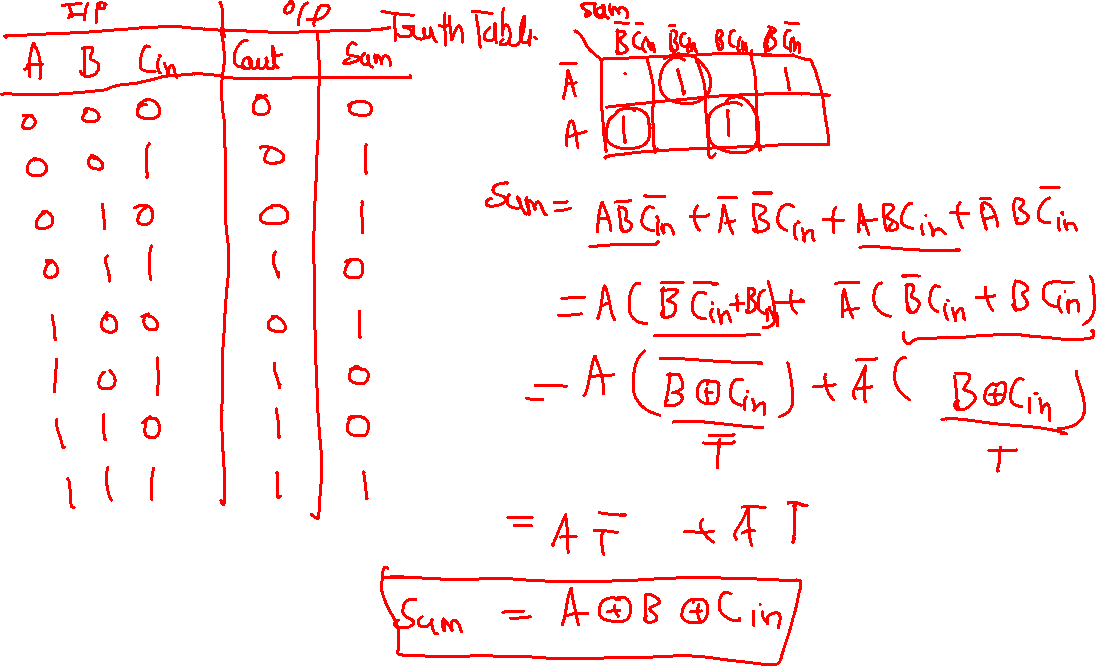 I/P O/P
Truth Table.
A B Cin Cout Sum
0 0 0 0 0
0 0 1 0 1
0 1 0 0 1
0 1 1 1 0
1 0 0 0 1
1 0 1 1 0
1 1 0 1 0
1 1 1 1 1
Sum
B̅C̅in B̅Cin BCin BC̅in
A̅ 1 1
A 1 1
Sum = AB̅C̅in + A̅ B̅Cin + ABCin + A̅ B C̅in
= A ( B̅ C̅in + BCin ) + A̅ ( B̅Cin + B C̅in )
= A ( \overline{B ⊕ Cin} ) + A̅ ( B ⊕ Cin )
T̅ T
= A T̅ + A̅ T
Sum = A ⊕ B ⊕ Cin